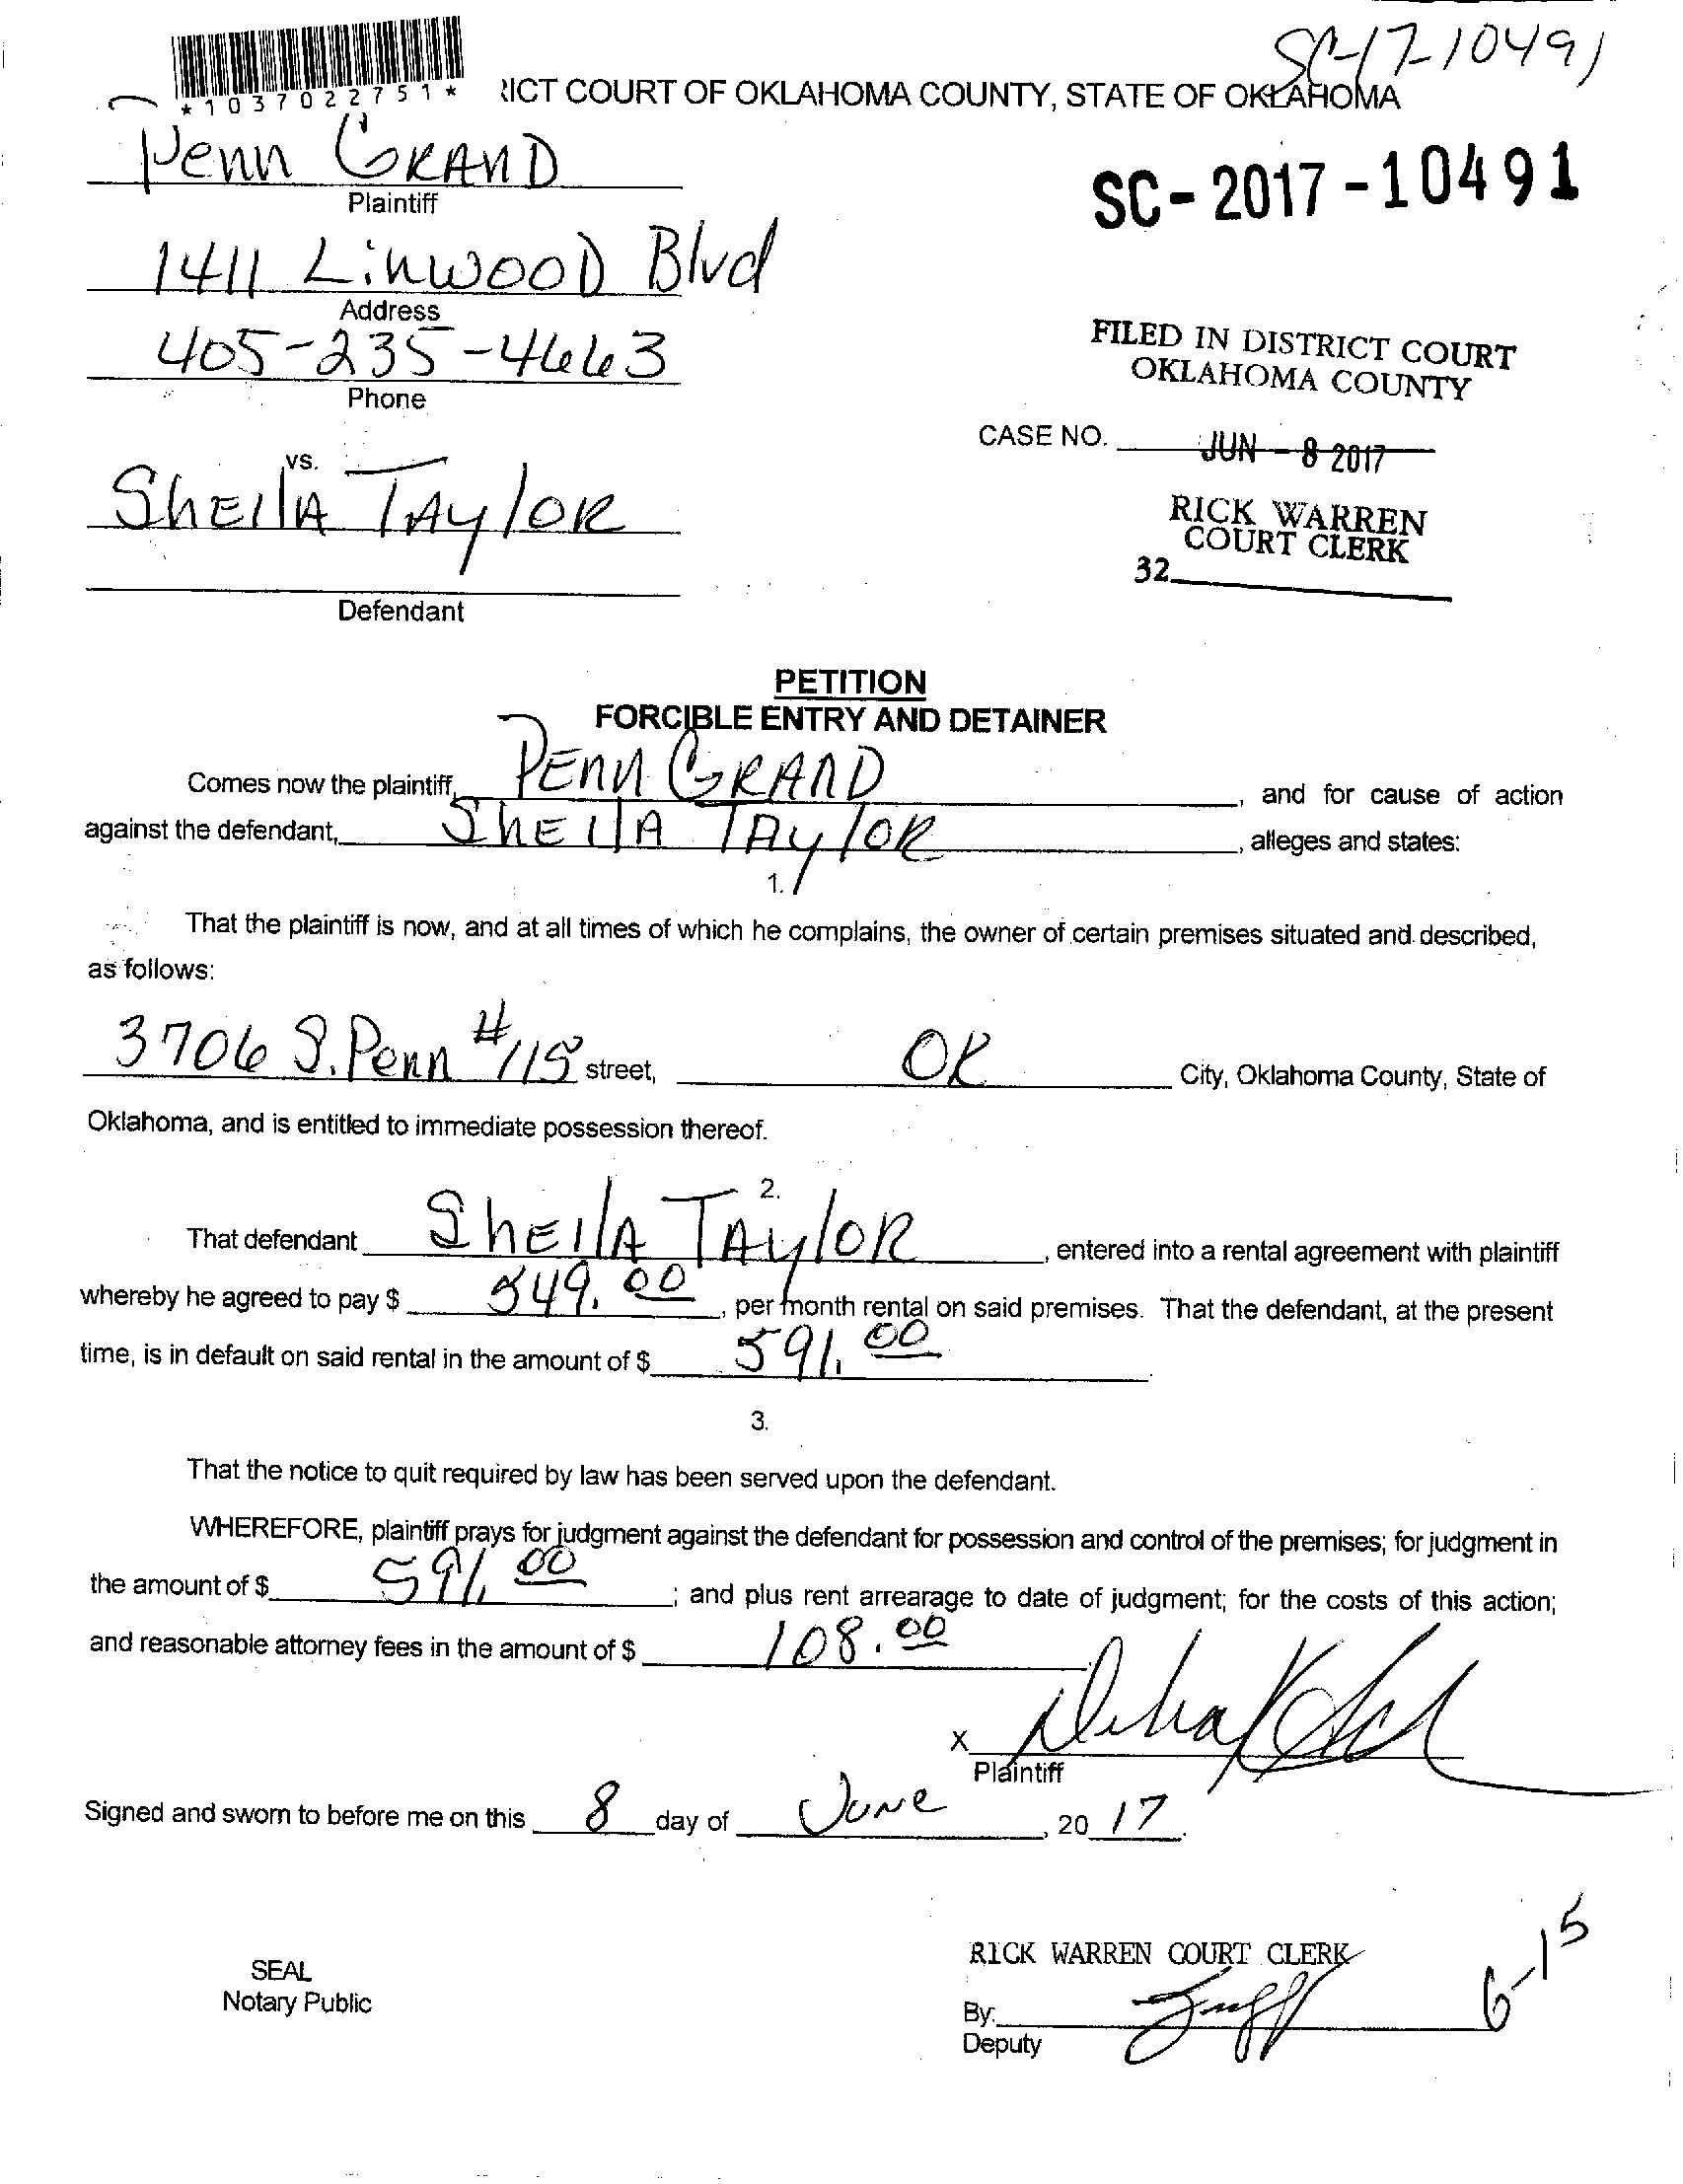 SC-17-10491
*1037022751*
RICT COURT OF OKLAHOMA COUNTY, STATE OF OKLAHOMA
Penn GRAND
Plaintiff
SC-2017-10491
1411 LinwooD Blvd
Address
405-235-4663
Phone
FILED IN DISTRICT COURT
OKLAHOMA COUNTY
CASE NO.
JUN - 8 2017
vs.
ShEilA TAylOR
RICK WARREN
COURT CLERK
32
Defendant
PETITION
FORCIBLE ENTRY AND DETAINER
Comes now the plaintiff, PEnn GRAnD, and for cause of action
against the defendant, ShEilA TAylOR, alleges and states:
1.
That the plaintiff is now, and at all times of which he complains, the owner of certain premises situated and described,
as follows:
3706 S. Penn #115 street, OK City, Oklahoma County, State of
Oklahoma, and is entitled to immediate possession thereof.
2.
That defendant ShEilA TAylOR, entered into a rental agreement with plaintiff
whereby he agreed to pay $ 549.00, per month rental on said premises. That the defendant, at the present
time, is in default on said rental in the amount of $ 591.00
3.
That the notice to quit required by law has been served upon the defendant.
WHEREFORE, plaintiff prays for judgment against the defendant for possession and control of the premises; for judgment in
the amount of $ 591.00; and plus rent arrearage to date of judgment; for the costs of this action;
and reasonable attorney fees in the amount of $ 108.00
x
Plaintiff
Signed and sworn to before me on this 8 day of June, 20 17.
SEAL
Notary Public
RICK WARREN COURT CLERK
By:
Deputy
6-15